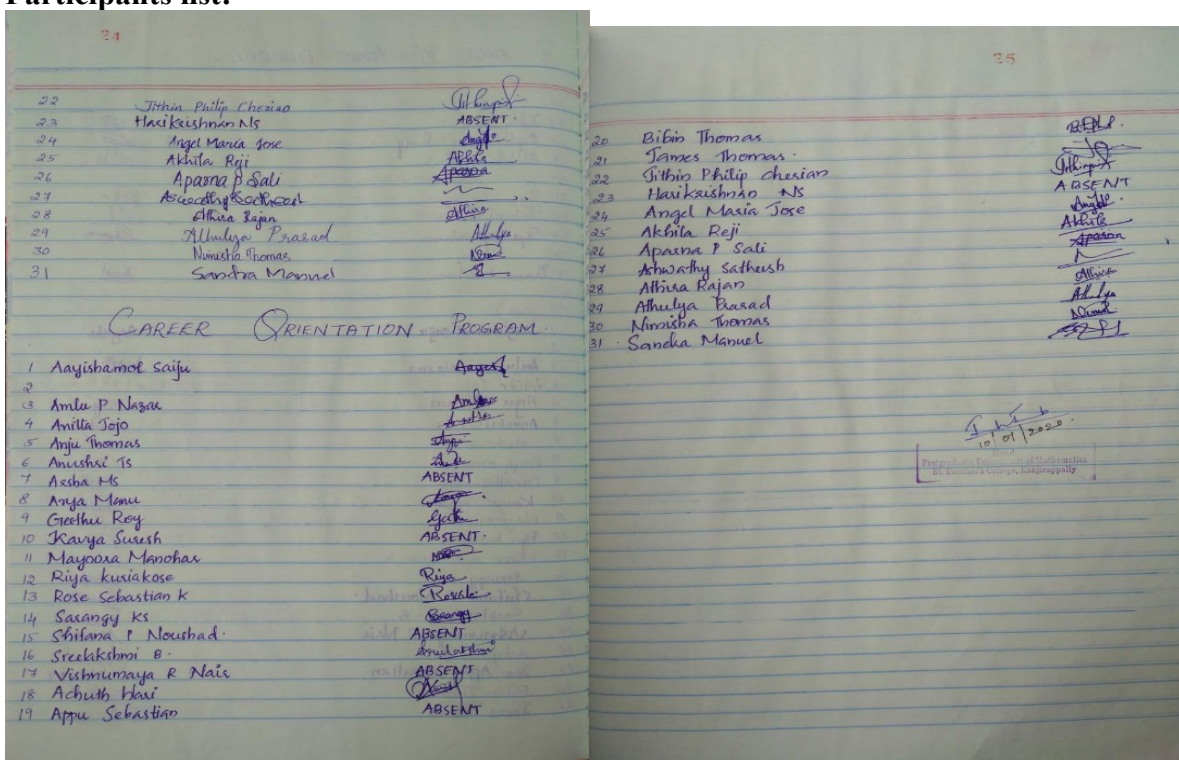 Participants list:
24
22 Jithin Philip Cherian
23 Harikrishnan Ns ABSENT.
24 Angel Maria Jose
25 Akhila Reji Akhila
26 Aparna P Sali Aparna
27
28 Athira Rajan Athira
29 Athulya Prasad Athulya
30 Nimisha Thomas
31 Sandra Manuel
CAREER ORIENTATION PROGRAM.
1 Aayishamol Saiju
2
3 Amlu P Nazar
4 Anilla Jojo
5 Anju Thomas Anju
6 Anushri Ts
7 Arsha Ms ABSENT
8 Arya Manu
9 Geethu Roy
10 Kavya Suresh ABSENT.
11 Mayoora Manohar
12 Riya kuriakose Riya
13 Rose Sebastian k
14 Sarangy Ks Sarangy
15 Shifana P Noushad. ABSENT
16 Sreelakshmi B. Sreelakshmi
17 Vishnumaya R Nair ABSENT
18 Achuth Hari
19 Appu Sebastian ABSENT
25
20 Bibin Thomas
21 James Thomas.
22 Jithin Philip cherian
23 Harikrishnan NS ABSENT
24 Angel Maria Jose
25 Akhila Reji Akhila
26 Aparna P Sali Aparna
27 Ashwathy Satheesh
28 Athira Rajan Athira
29 Athulya Prasad Athulya
30 Nimisha Thomas
31 Sandra Manuel
10/01/2020.
Head
Postgraduate Department of Mathematics
St. Dominic's College, Kanjirappally